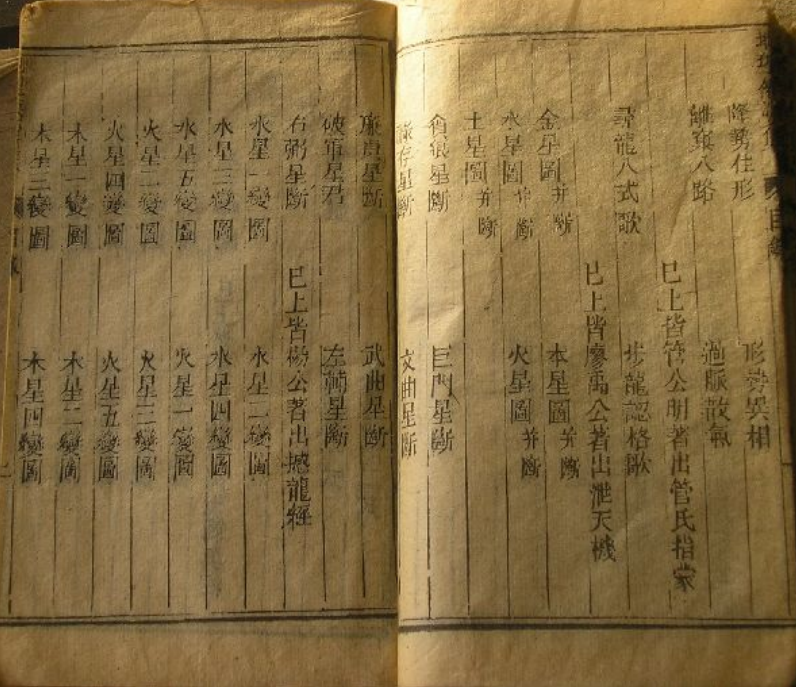 降勢住形　形勢異相
離窠八路　過脈散氣
已上皆管公明著出管氏指蒙
尋龍八式歌　步龍認格歌
已上皆廖禹公著出泄天機
金星圖并斷　木星圖并斷
水星圖并斷　火星圖并斷
土星圖并斷
貪狼星斷　巨門星斷
祿存星斷　文曲星斷
廉貞星斷　武曲星斷
破軍星君　左輔星斷
右弼星斷　已上皆楊公著出撼龍經
水星一變圖　水星二變圖
水星三變圖　水星四變圖
水星五變圖　火星一變圖
火星二變圖　火星三變圖
火星四變圖　火星五變圖
木星一變圖　木星二變圖
木星三變圖　木星四變圖